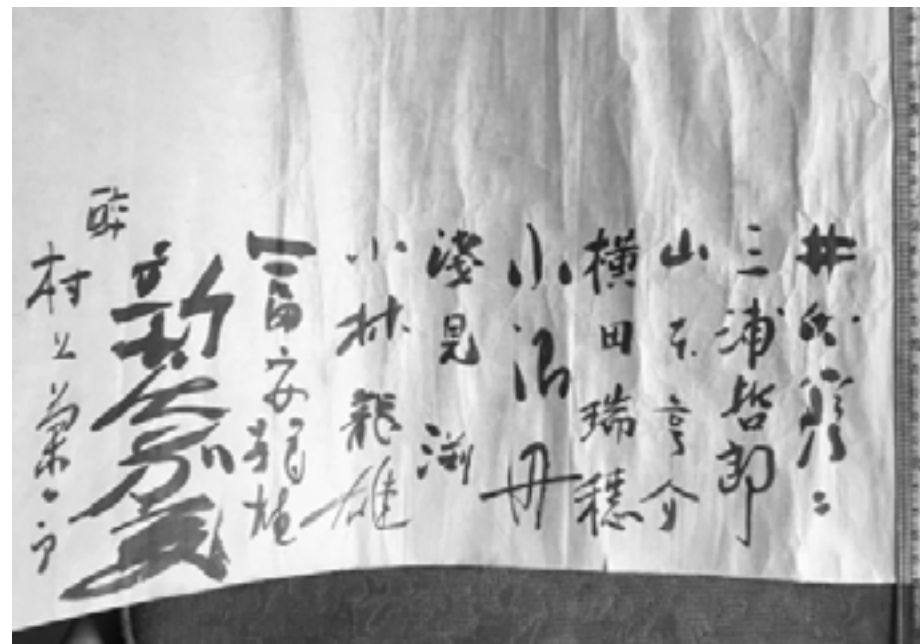 井伏鱒二
三浦哲郎
山本亨介
横田瑞穂
小沼丹
淺見淵
小林龍雄
冨安龍雄
新庄嘉章
酔
村上菊一郎